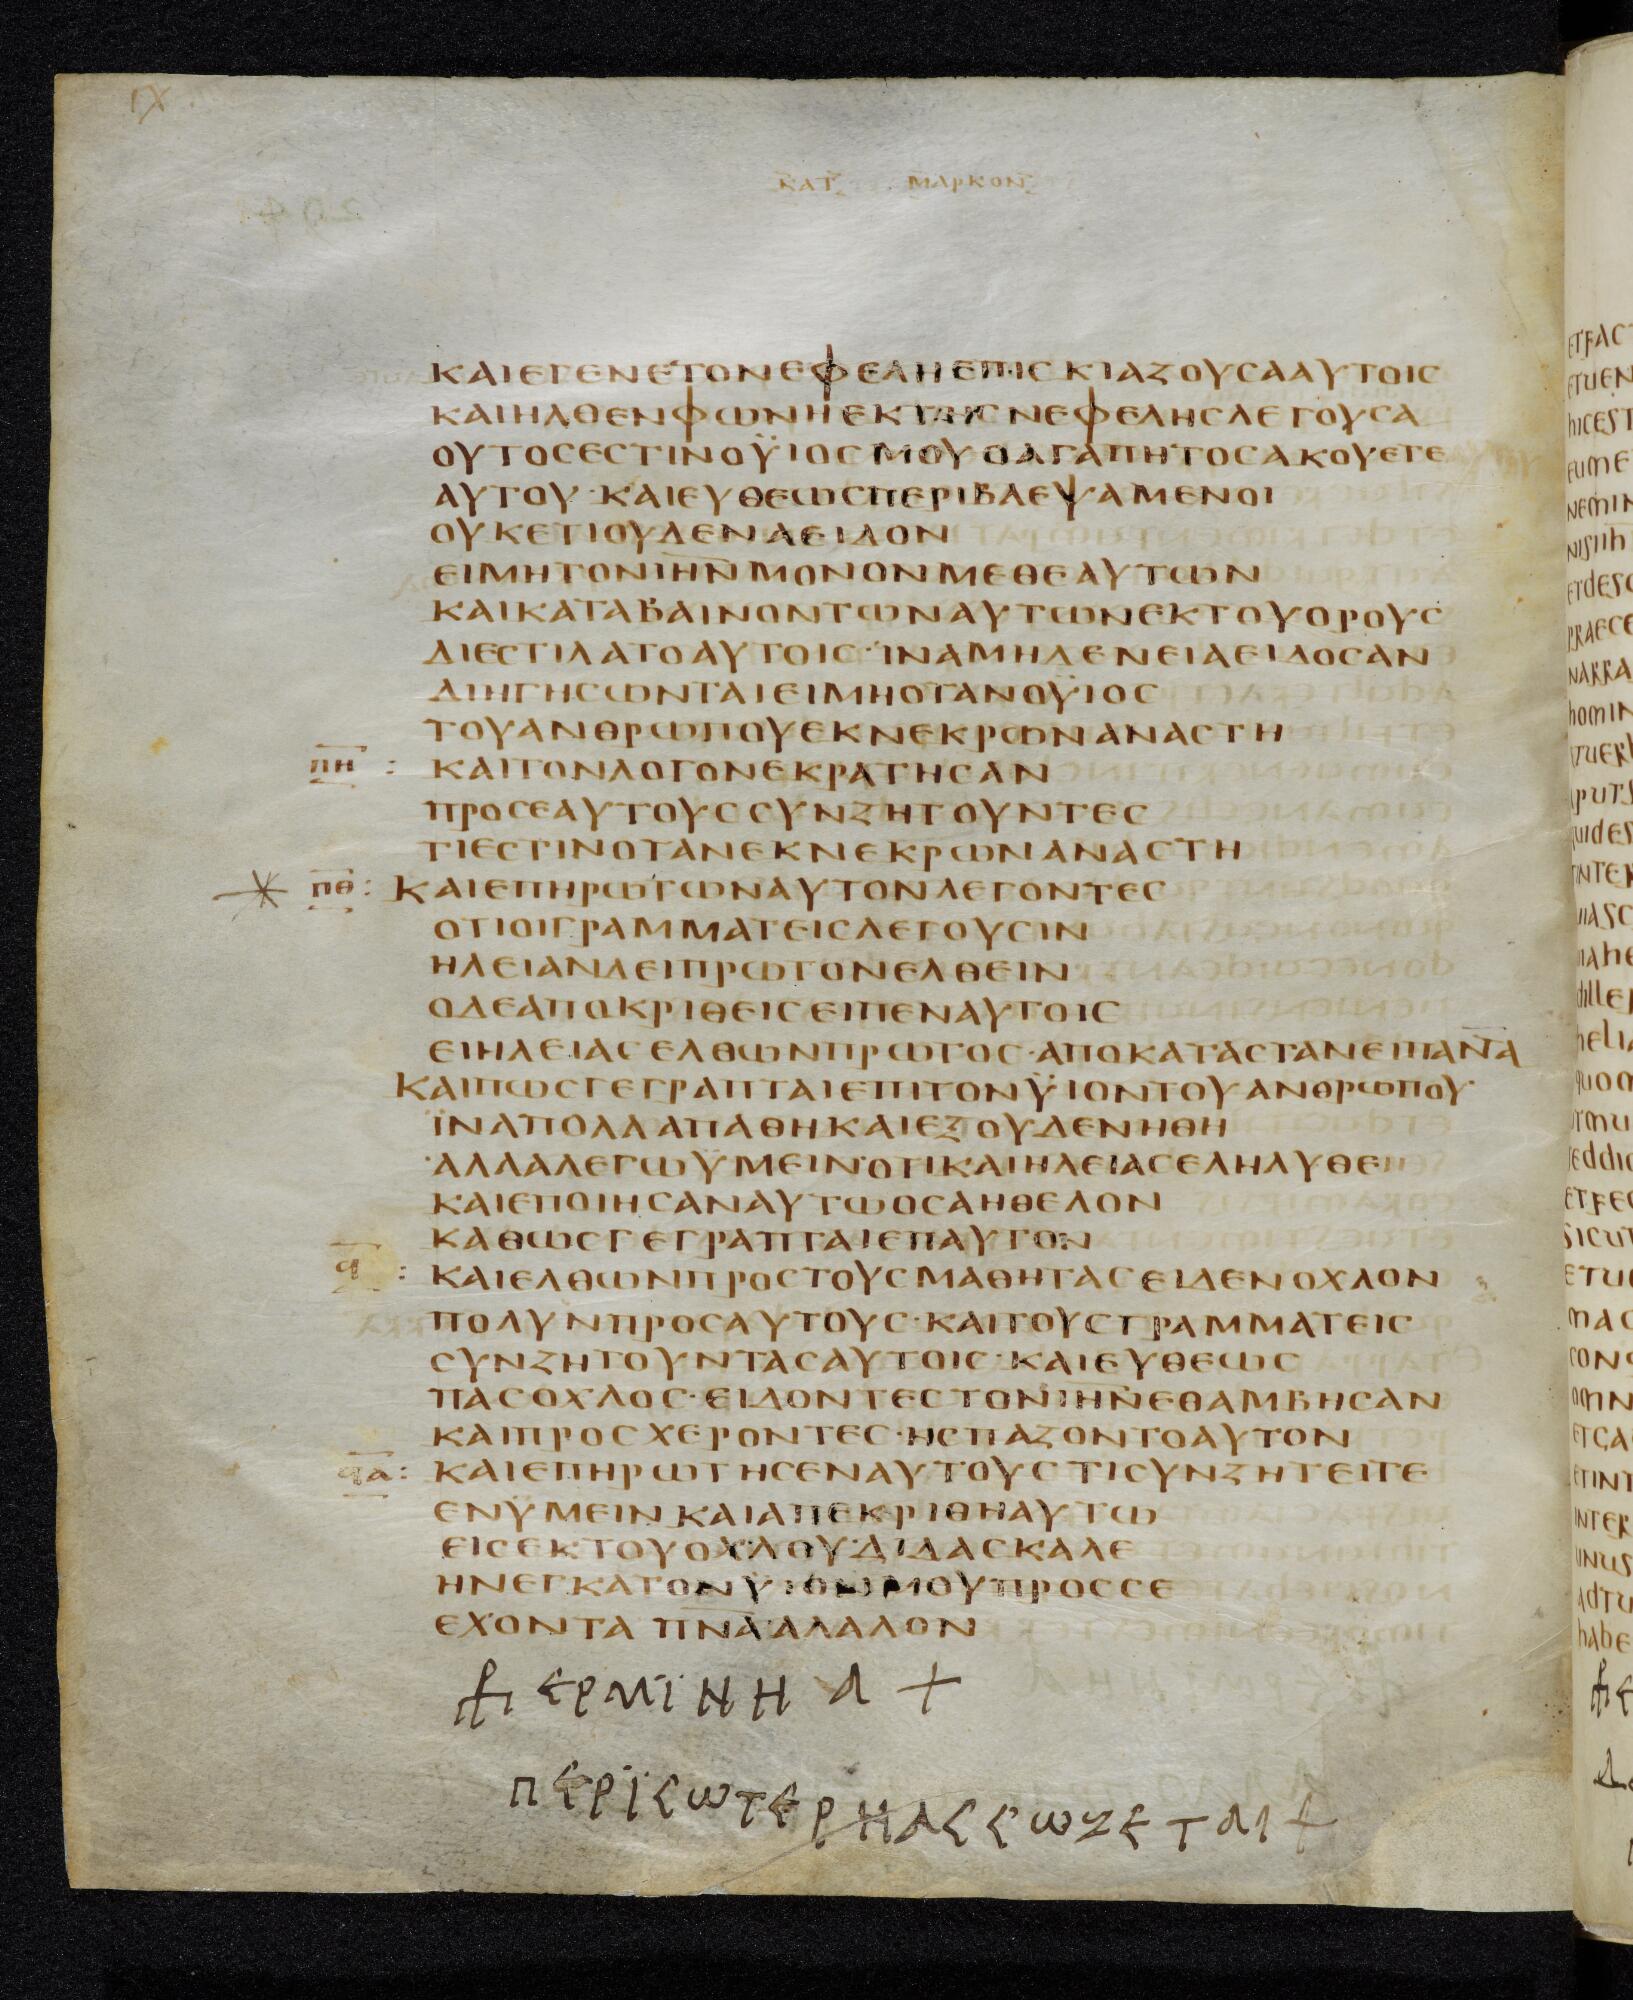 ΙΧ
ΚΑΤ ΜΑΡΚΟΝ
ΚΑΙΕΓΕΝΕΤΟΝΕΦΕΛΗΕΠΙΣΚΙΑΖΟΥΣΑΑΥΤΟΙΣ
ΚΑΙΗΛΘΕΝΦΩΝΗΕΚΤΗΣΝΕΦΕΛΗΣΛΕΓΟΥΣΑ
ΟΥΤΟΣΕΣΤΙΝΟΫΙΟΣΜΟΥΟΑΓΑΠΗΤΟΣΑΚΟΥΕΤΕ
ΑΥΤΟΥ·ΚΑΙΕΥΘΕΩΣΠΕΡΙΒΛΕΨΑΜΕΝΟΙ
ΟΥΚΕΤΙΟΥΔΕΝΑΕΙΔΟΝ
ΕΙΜΗΤΟΝΙΗΝΜΟΝΟΝΜΕΘΕΑΥΤΩΝ
ΚΑΙΚΑΤΑΒΑΙΝΟΝΤΩΝΑΥΤΩΝΕΚΤΟΥΟΡΟΥΣ
ΔΙΕΣΤΙΛΑΤΟΑΥΤΟΙΣ·ΪΝΑΜΗΔΕΝΕΙΑΕΙΔΟΣΑΝ
ΔΙΗΓΗΣΩΝΤΑΙΕΙΜΗΟΤΑΝΟΫΙΟΣ
ΤΟΥΑΝΘΡΩΠΟΥΕΚΝΕΚΡΩΝΑΝΑΣΤΗ
ΠΗ : ΚΑΙΤΟΝΛΟΓΟΝΕΚΡΑΤΗΣΑΝ
ΠΡΟΣΕΑΥΤΟΥΣΣΥΝΖΗΤΟΥΝΤΕΣ
ΤΙΕΣΤΙΝΟΤΑΝΕΚΝΕΚΡΩΝΑΝΑΣΤΗ
ΠΘ : ΚΑΙΕΠΗΡΩΤΩΝΑΥΤΟΝΛΕΓΟΝΤΕΣ
ΟΤΙΟΙΓΡΑΜΜΑΤΕΙΣΛΕΓΟΥΣΙΝ
ΗΛΕΙΑΝΔΕΙΠΡΩΤΟΝΕΛΘΕΙΝ
ΟΔΕΑΠΟΚΡΙΘΕΙΣΕΙΠΕΝΑΥΤΟΙΣ
ΕΙΗΛΕΙΑΣΕΛΘΩΝΠΡΩΤΟΣ·ΑΠΟΚΑΤΑΣΤΑΝΕΙΠΑΝΤΑ
ΚΑΙΠΩΣΓΕΓΡΑΠΤΑΙΕΠΙΤΟΝΫΙΟΝΤΟΥΑΝΘΡΩΠΟΥ
ΪΝΑΠΟΛΛΑΠΑΘΗΚΑΙΕΞΟΥΔΕΝΗΘΗ
·ΑΛΛΑΛΕΓΩΫΜΕΙΝ·ΟΤΙΚΑΙΗΛΕΙΑΣΕΛΗΛΥΘΕΝ
ΚΑΙΕΠΟΙΗΣΑΝΑΥΤΩΟΣΑΗΘΕΛΟΝ
ΚΑΘΩΣΓΕΓΡΑΠΤΑΙΕΠΑΥΤΟΝ
Ϥ : ΚΑΙΕΛΘΩΝΠΡΟΣΤΟΥΣΜΑΘΗΤΑΣΕΙΔΕΝΟΧΛΟΝ
ΠΟΛΥΝΠΡΟΣΑΥΤΟΥΣ·ΚΑΙΤΟΥΣΓΡΑΜΜΑΤΕΙΣ
ΣΥΝΖΗΤΟΥΝΤΑΣΑΥΤΟΙΣ·ΚΑΙΕΥΘΕΩΣ
ΠΑΣΟΧΛΟΣ·ΕΙΔΟΝΤΕΣΤΟΝΙΗΝΕΘΑΜΒΗΣΑΝ
ΚΑΙΠΡΟΣΧΕΡΟΝΤΕΣ·ΗΣΠΑΖΟΝΤΟΑΥΤΟΝ
ϤΑ : ΚΑΙΕΠΗΡΩΤΗΣΕΝΑΥΤΟΥΣΤΙΣΥΝΖΗΤΕΙΤΕ
ΕΝΫΜΕΙΝΚΑΙΑΠΕΚΡΙΘΗΑΥΤΩ
ΕΙΣΕΚΤΟΥΟΧΛΟΥ·ΔΙΔΑΣΚΑΛΕ
ΗΝΕΓΚΑΤΟΝΫΙΟΝΜΟΥΠΡΟΣΣΕ
ΕΧΟΝΤΑ ΠΝΑΑΛΑΛΟΝ
ΕΡΜΪΝΗΑ +
ΠΕΡΪΣΩΤΕΡΗΑΣΣΩΖΕΤΑΙ +